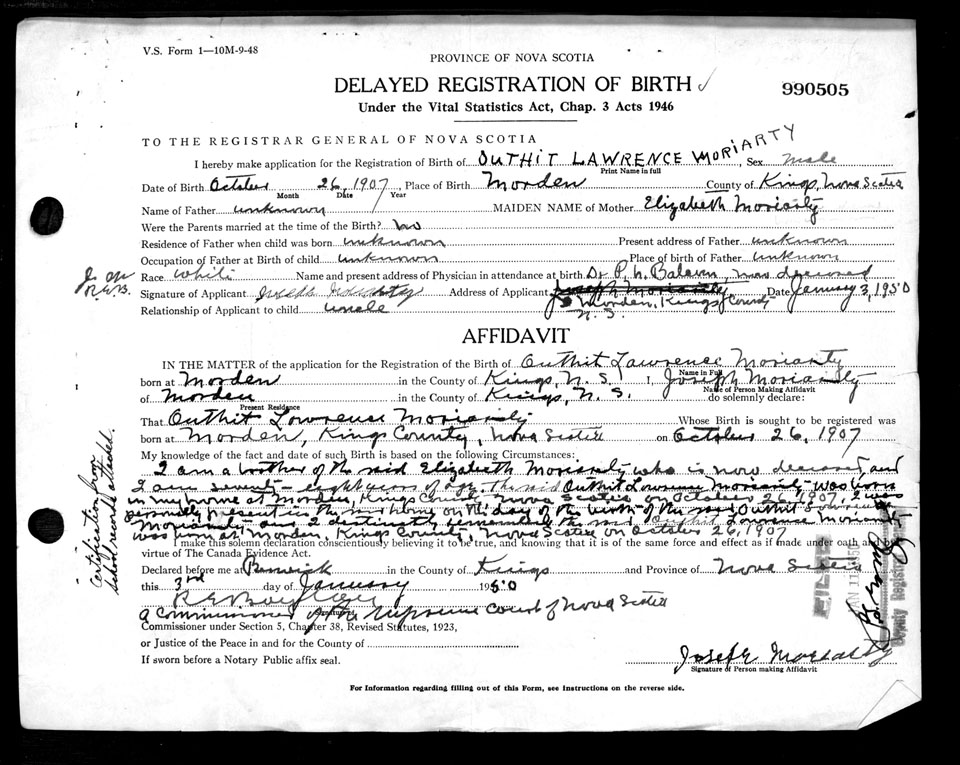 V.S. Form 1—10M-9-48
PROVINCE OF NOVA SCOTIA
DELAYED REGISTRATION OF BIRTH
990505
Under the Vital Statistics Act, Chap. 3 Acts 1946
TO THE REGISTRAR GENERAL OF NOVA SCOTIA
I hereby make application for the Registration of Birth of OUTHIT LAWRENCE MORIARTY, Sex Male
Print Name in full
Date of Birth October 26, 1907, Place of Birth Morden County of Kings, Nova Scotia
Month Date Year
Name of Father unknown MAIDEN NAME of Mother Elizabeth Moriarity
Were the Parents married at the time of the Birth? No
Residence of Father when child was born unknown Present address of Father unknown
Occupation of Father at Birth of child unknown Place of birth of Father unknown
Race White Name and present address of Physician in attendance at birth Dr P. N. Balcom, now deceased
Signature of Applicant Joseph Moriarty Address of Applicant Joseph Moriarity Date January 3, 1950
Morden, Kings County
N. S.
Relationship of Applicant to child uncle
AFFIDAVIT
IN THE MATTER of the application for the Registration of the Birth of Outhit Lawrence Moriarity
Name in Full
born at Morden in the County of Kings, N. S. I, Joseph Moriarity
Name of Person Making Affidavit
of Morden in the County of Kings, N. S. do solemnly declare:
Present Residence
That Outhit Lawrence Moriarity Whose Birth is sought to be registered was
born at Morden, Kings County, Nova Scotia on October 26, 1907
My knowledge of the fact and date of such Birth is based on the following Circumstances:
I am a brother of the said Elizabeth Moriarity who is now deceased, and
I am seventy-eight years of age. The said Outhit Lawrence Moriarity was born
in my home at Morden, Kings County, Nova Scotia on October 26, 1907, I was
personally present in the said home on the day of the birth of the said Outhit Lawrence
Moriarity and I distinctly remember the said Outhit Lawrence Moriarity
was born at Morden, Kings County, Nova Scotia on October 26, 1907
I make this solemn declaration conscientiously believing it to be true, and knowing that it is of the same force and effect as if made under oath and by
virtue of The Canada Evidence Act.
Declared before me at Berwick in the County of Kings and Province of Nova Scotia
this 3rd day of January 1950
Signature
A Commissioner of the Supreme Court of Nova Scotia
Commissioner under Section 5, Chapter 38, Revised Statutes, 1923,
or Justice of the Peace in and for the County of
If sworn before a Notary Public affix seal.
Joseph Moriarty
Signature of Person making Affidavit
For Information regarding filling out of this Form, see Instructions on the reverse side.
Certification from
school records attached.
FILED
JAN 11 1950
Deputy Registrar